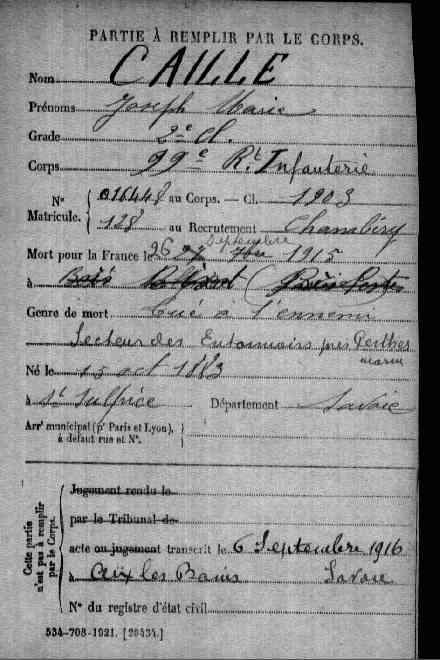 PARTIE À REMPLIR PAR LE CORPS.
Nom CAILLE
Prénoms Joseph Marie
Grade 2e Cl.
Corps 99e Rt Infanterie
No Matricule. { 016448 au Corps. — Cl. 1903
128 au Recrutement Chambéry
Septembre
Mort pour la France le 26 1915
à Bois
Genre de mort tué à l'ennemi
Secteur des Entonnoirs près Perthes
Né le 15 oct 1883
à St Sulpice Département Savoie
Arrt municipal (pr Paris et Lyon), à défaut rue et No. }
Cette partie n'est pas à remplir par le Corps.
Jugement rendu le
par le Tribunal de
acte ou jugement transcrit le 6 Septembre 1916
à Aix les Bains Savoie
No du registre d'état civil
534-708-1921. [26434.]